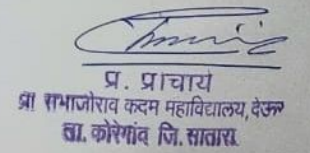 प्र. प्राचार्य
प्रा संभाजीराव कदम महाविद्यालय, देऊर
ता. कोरेगांव जि. सातारा